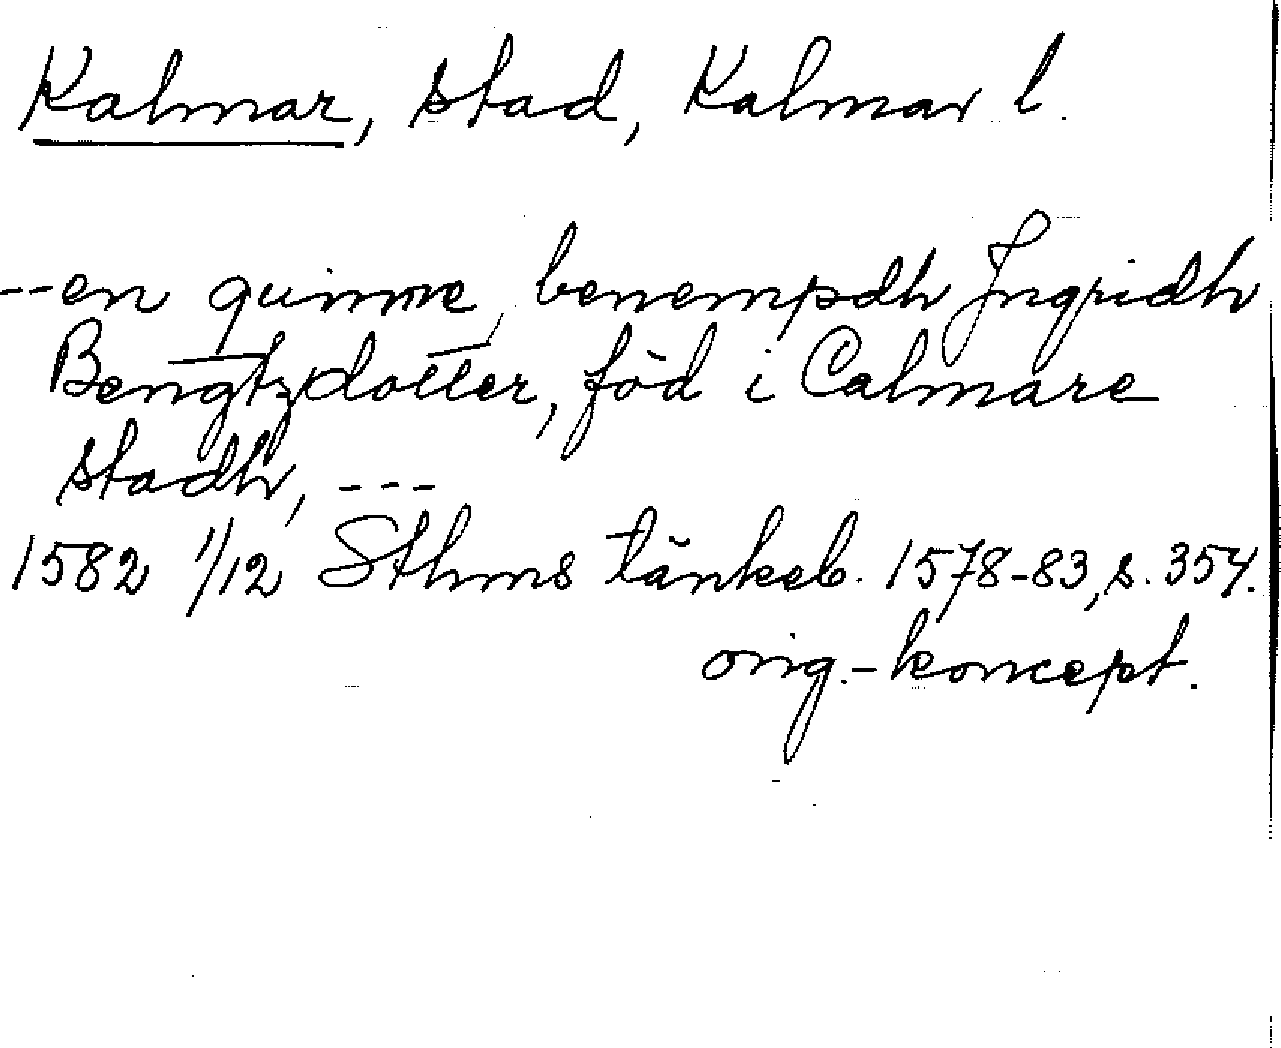 Kalmar, stad, Kalmar l.
--en quinne, benempdh Ingridh
Bengtzdotter, föd i Calmare
stadh, ---
1582 1/12 Sthms tänkeb. 1578-83, s. 354.
orig.-koncept.